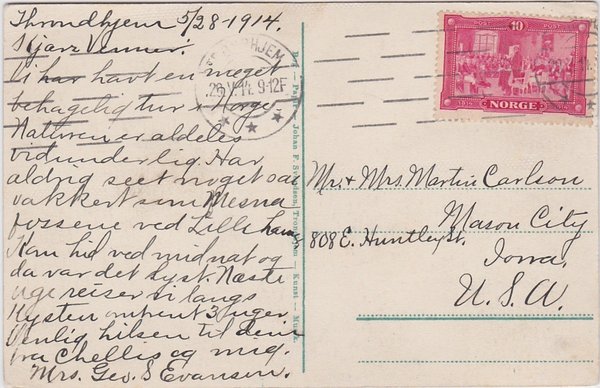 Throndhjem 5/28-1914.
Kjære Venner.
Vi har havt en meget
behagelig tur i Norge
Naturen er aldeles
vidunderlig. Har
aldrig seet noget saa
vakkert som Mesna
fossene ved Lille hamr
Kom hid ved midnat og
da var det lyst. Næste
uge reiser vi langs
Kysten omtrent 3 uger
Venlig hilsen til dem
fra Chellis og mig.
Mrs. Geo. S Evansen.
HJEM
26 V 14. 9-12F
Johan F. Svendsen, Trondhjem — Kunst — Musik.
10
NORGE
Mr. & Mrs. Martin Carlson
Mason City
808 E. Huntley St.
Iowa.
U.S.A.